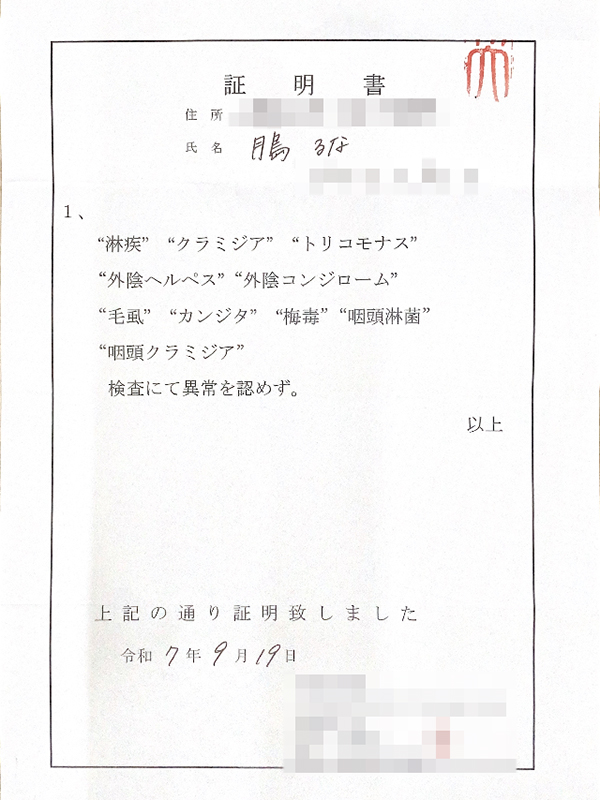 証明書
住所
氏名 月島 るな
1、
“淋疾” “クラミジア” “トリコモナス”
“外陰ヘルペス” “外陰コンジローム”
“毛虱” “カンジタ” “梅毒” “咽頭淋菌”
“咽頭クラミジア”
検査にて異常を認めず。
以上
上記の通り証明致しました
令和 7 年 9 月 19 日